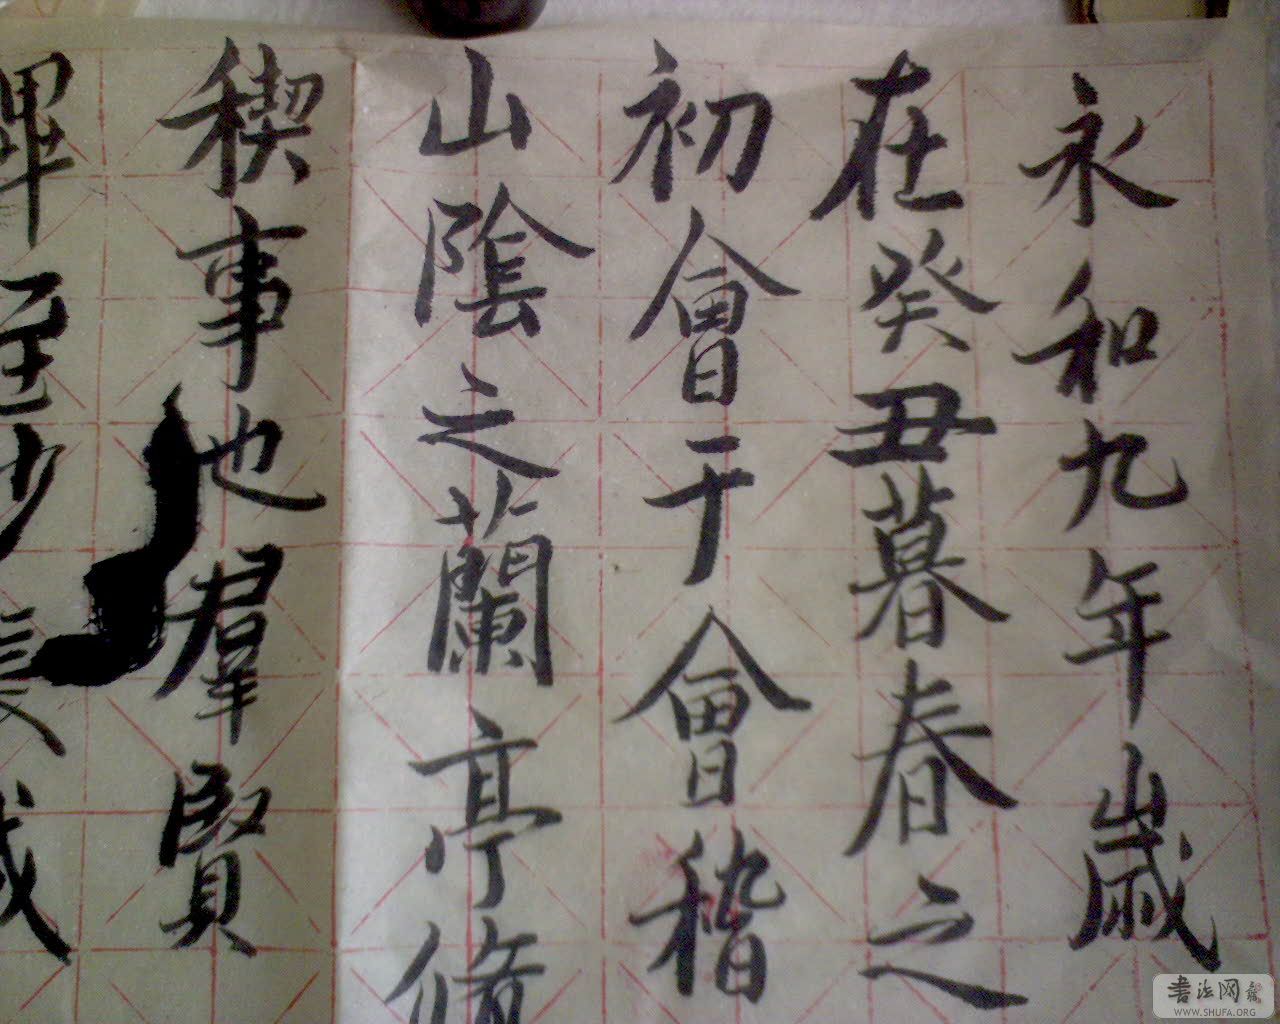 永和九年歲
在癸丑暮春之
初會于會稽
山陰之蘭亭修
稧事也羣賢
畢至少長咸
书法网
WWW.SHUFA.ORG